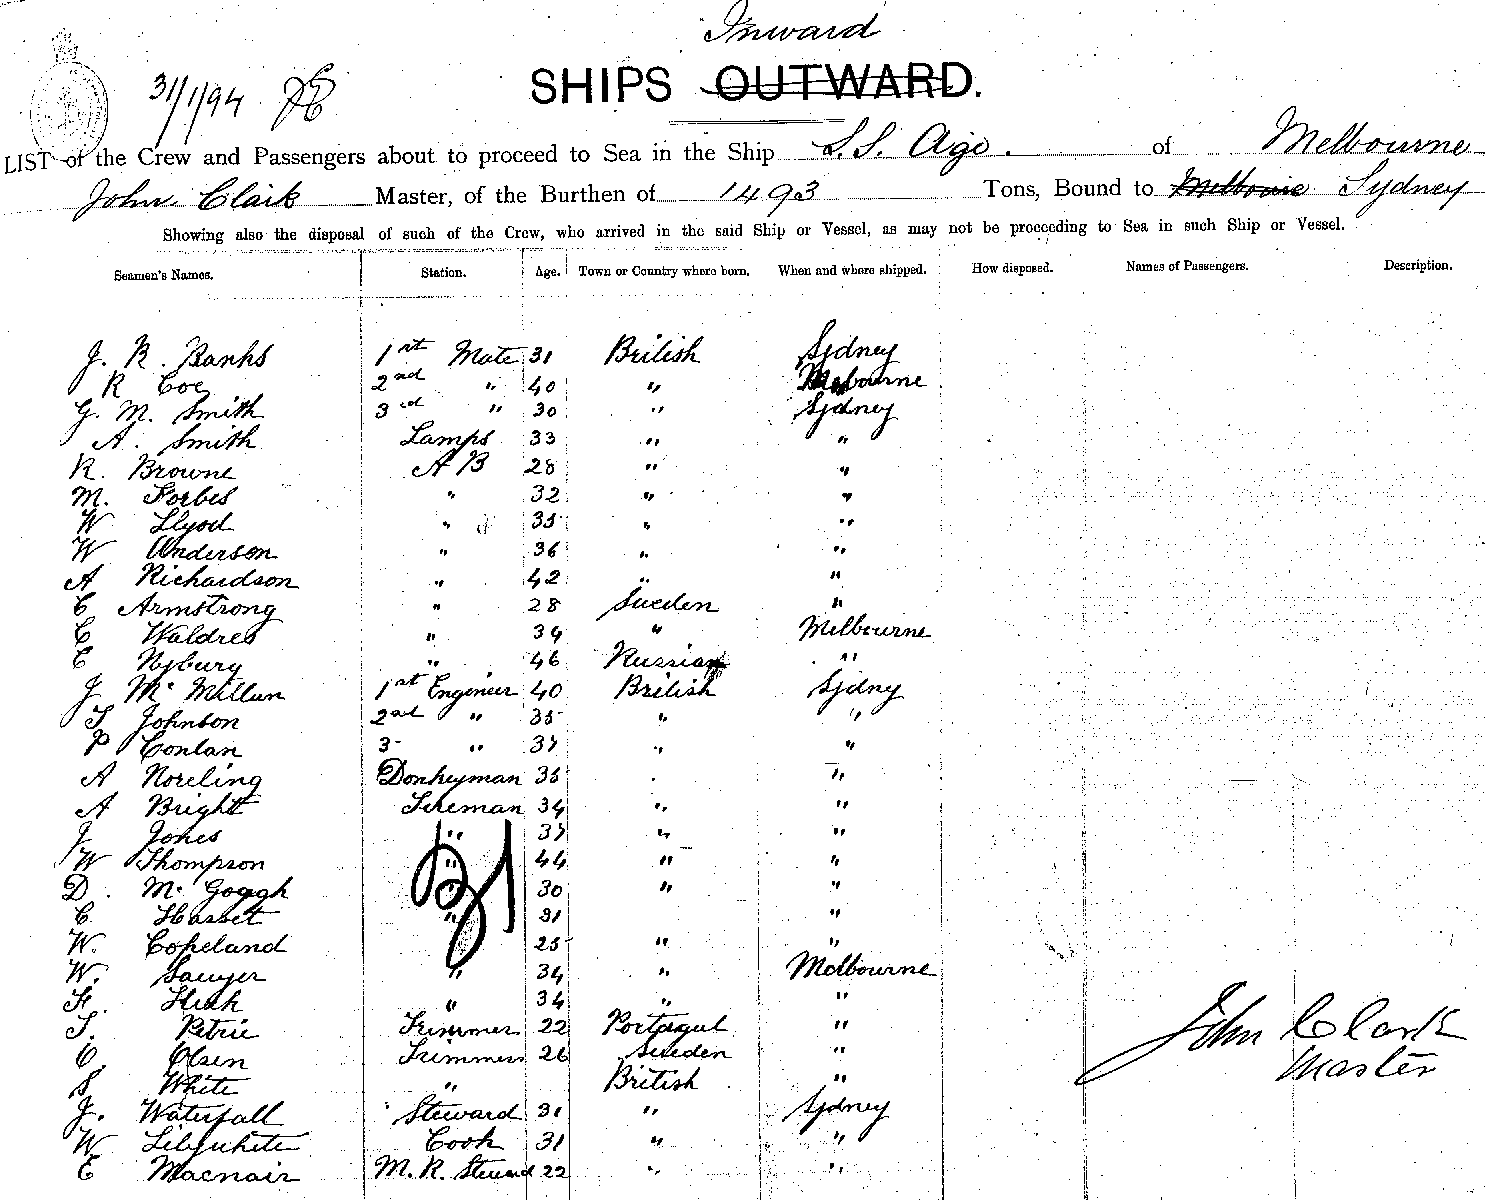 Inward
SHIPS OUTWARD.
31/1/94
LIST of the Crew and Passengers about to proceed to Sea in the Ship S.S. Age. of Melbourne
John Clark Master, of the Burthen of 1493 Tons, Bound to Melbourne Sydney
Showing also the disposal of such of the Crew, who arrived in the said Ship or Vessel, as may not be proceeding to Sea in such Ship or Vessel.
Seamen's Names. Station. Age. Town or Country where born. When and where shipped. How disposed. Names of Passengers. Description.
J. R. Banks 1st Mate 31 British Sydney
R Coe 2nd " 40 " Melbourne
G. M. Smith 3rd " 30 " Sydney
A. Smith Lamps 33 " "
R. Browne A B 28 " "
M. Forbes " 32 " "
W Llyod " 35 " "
W Anderson " 36 " "
A Richardson " 42 " "
C Armstrong " 28 Sweden "
C Waldres " 34 " Melbourne
C Nybury " 46 Russian "
J McMillan 1st Engineer 40 British Sydney
T Johnson 2nd " 35 " "
P Conlan 3 " 37 " "
A Noreling Donkeyman 35 "
A Bright Fireman 34 " "
J Jones " 37 " "
W Thompson " 44 " "
D. Mc Goggh 30 " "
C. Hasset " 31 "
W. Copeland 25 " "
W. Sawyer " 34 " Melbourne
F. " 34 " "
T. Petrie Trimmer 22 Portugal "
O. Olsen Trimmer 26 Sweden "
S White " British "
J. Waterfall Steward 31 " Sydney
W Lilywhite Cook 31 " "
E Macnair M. R. Steward 22 " "
John Clark
Master